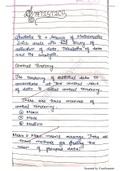 STATISTICS
Statistics is a branch of Mathematics
which deals with the study of
collection of data, Tabulation of data
and its analysis.
Central Tendency
The tendency of statistical data to
concentrate at the central part
of data is called central tendency.
There are three measures of
central tendency.
Mean
Mode
Median
Mean : Mean means average. There are
three methods for finding the
mean of grouped data: